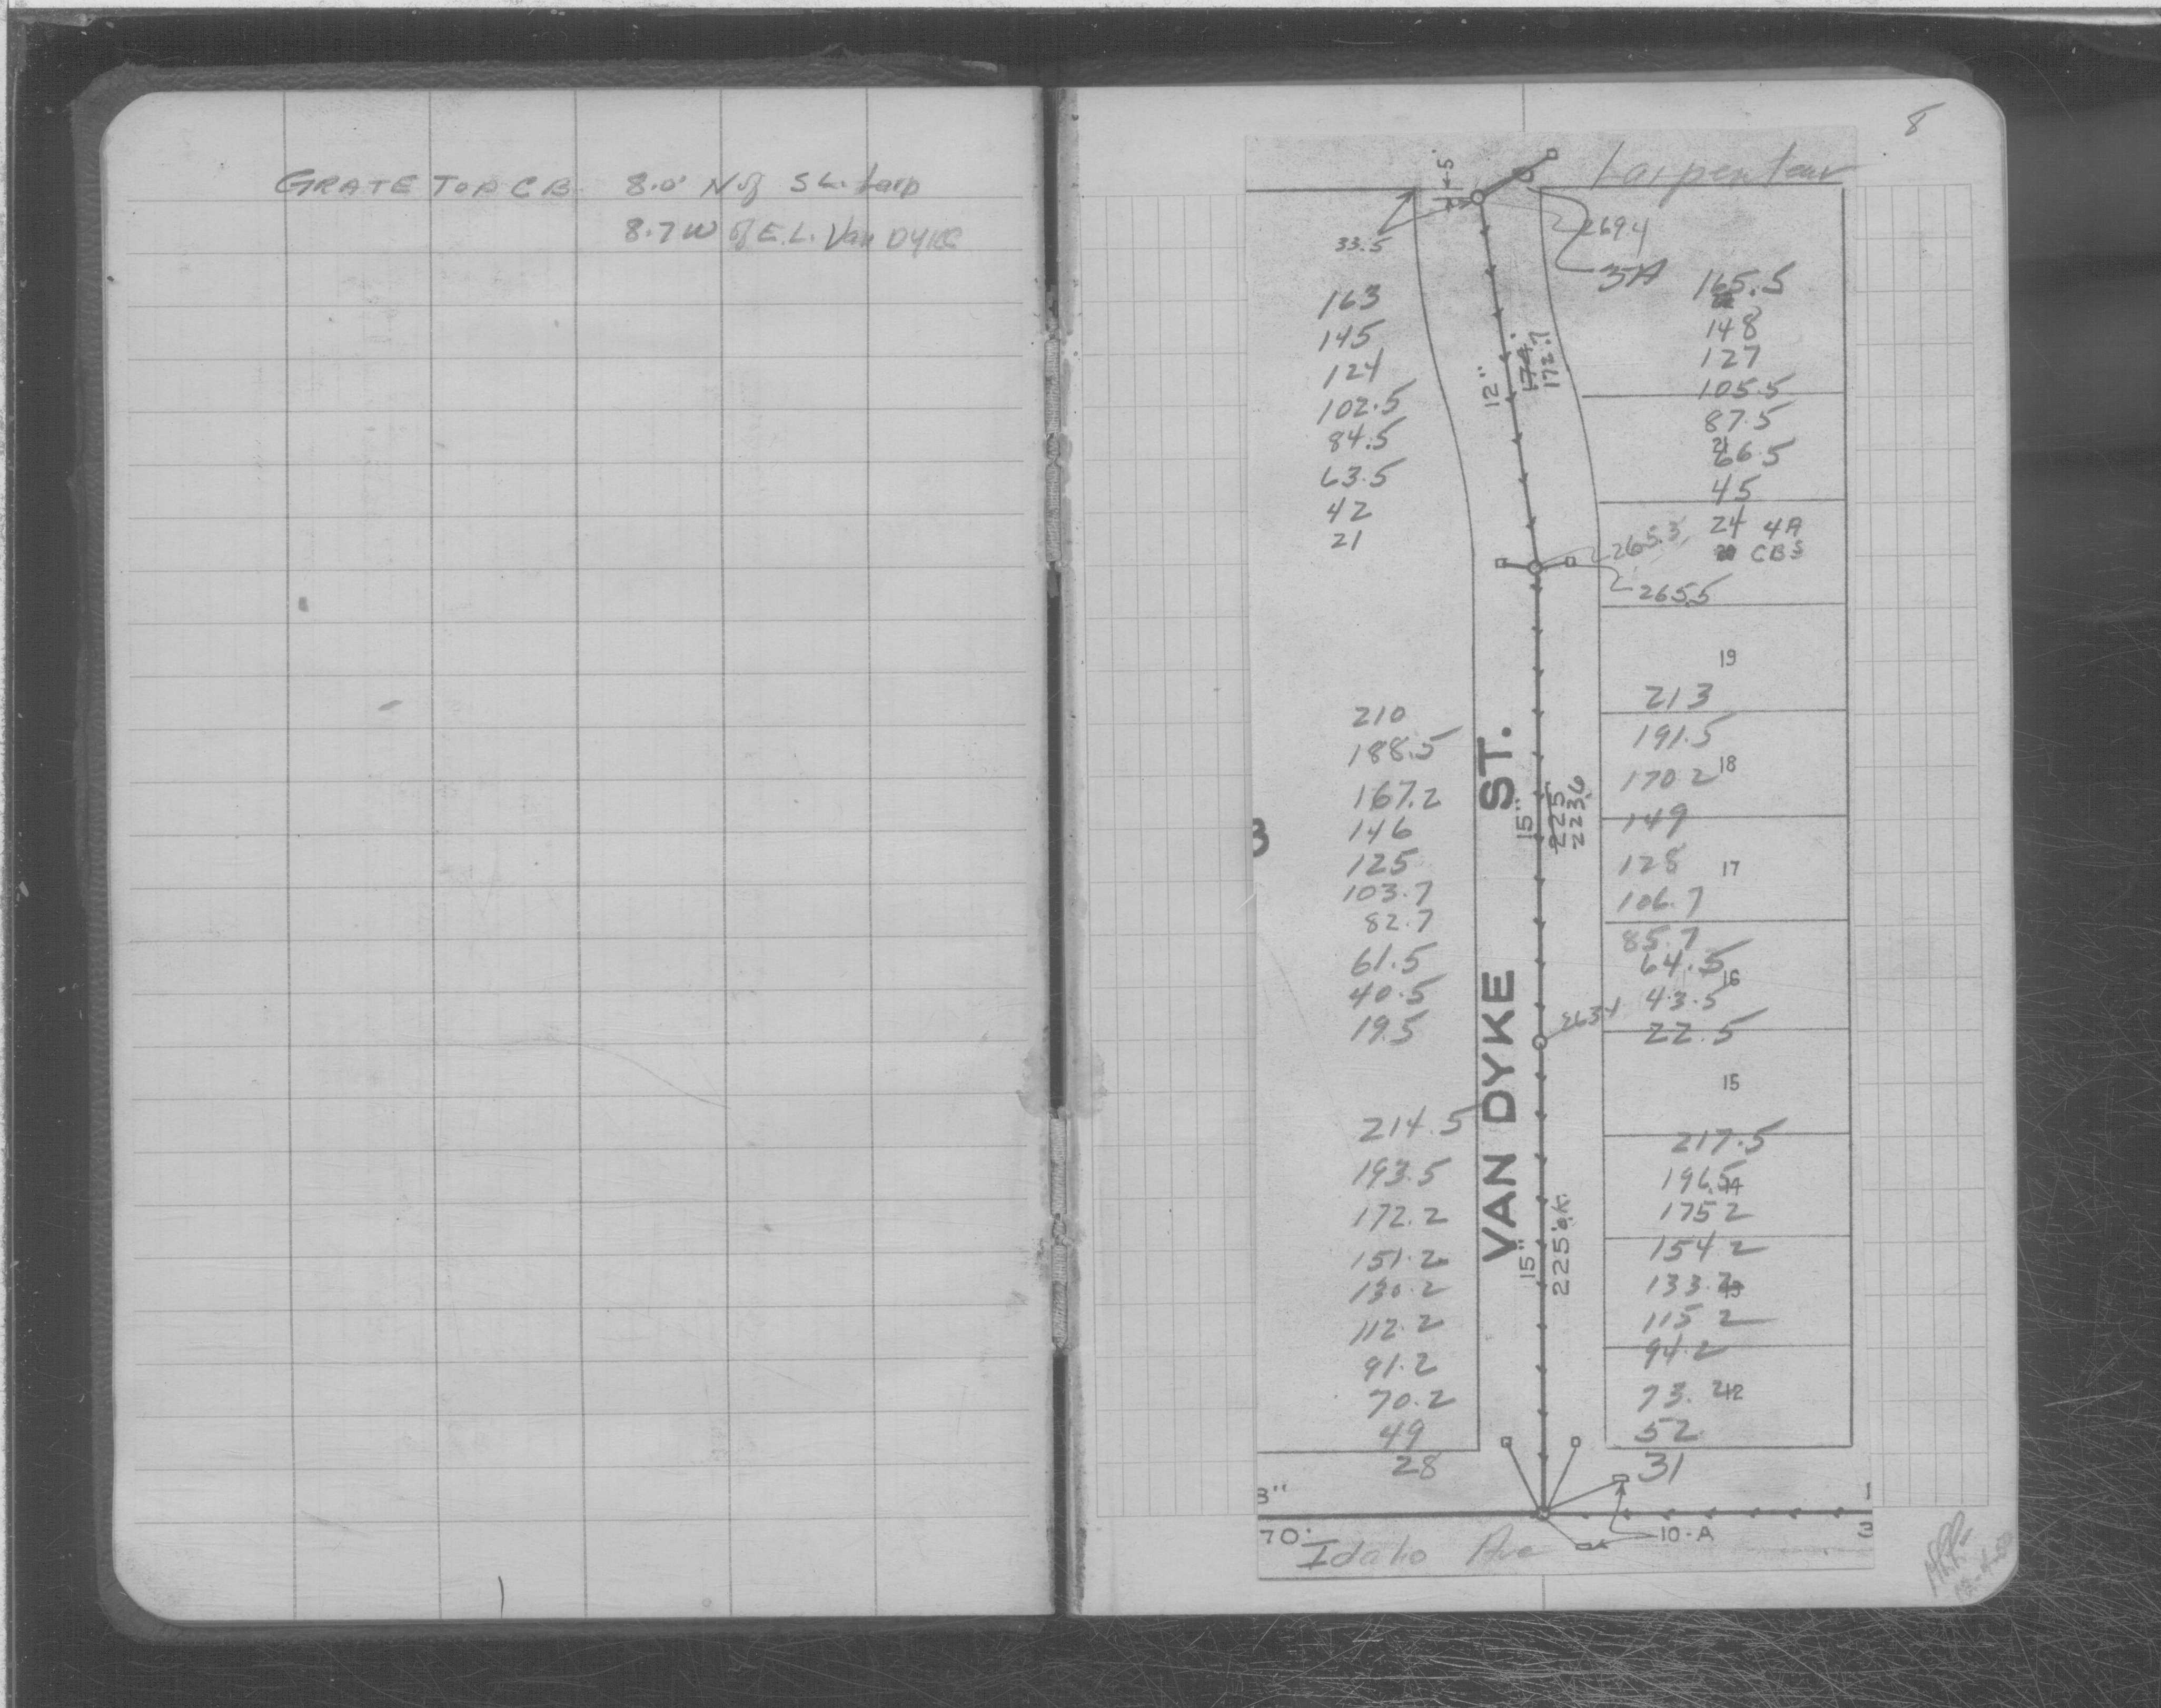 GRATE TOP CB. 8.0' N of S L. Larp
8.7 W of E.L. Van DYKE
8
Larpenteur
.5
33.5
2694
3A
163
145
124
102.5
84.5
63.5
42
21
12"
174.'
172.7
165.5
148
127
105.5
87.5
66.5
45
24 4A
CBS
265.3
265.5
19
213
191.5
170.2 18
149
128 17
106.7
85.7
64.5
16
43.5
22.5
15
210
188.5
167.2
146
125
103.7
82.7
61.5
40.5
19.5
3
15"
225
223.6
VAN DYKE ST.
2634
214.5
193.5
172.2
151.2
130.2
112.2
91.2
70.2
49
28
15"
225' o.k.
217.5
196.5 14
175 2
154 2
133.2 13
115 2
94.2
73. 2 12
52
31
8"
70'
Idaho Ave
10-A
1
3